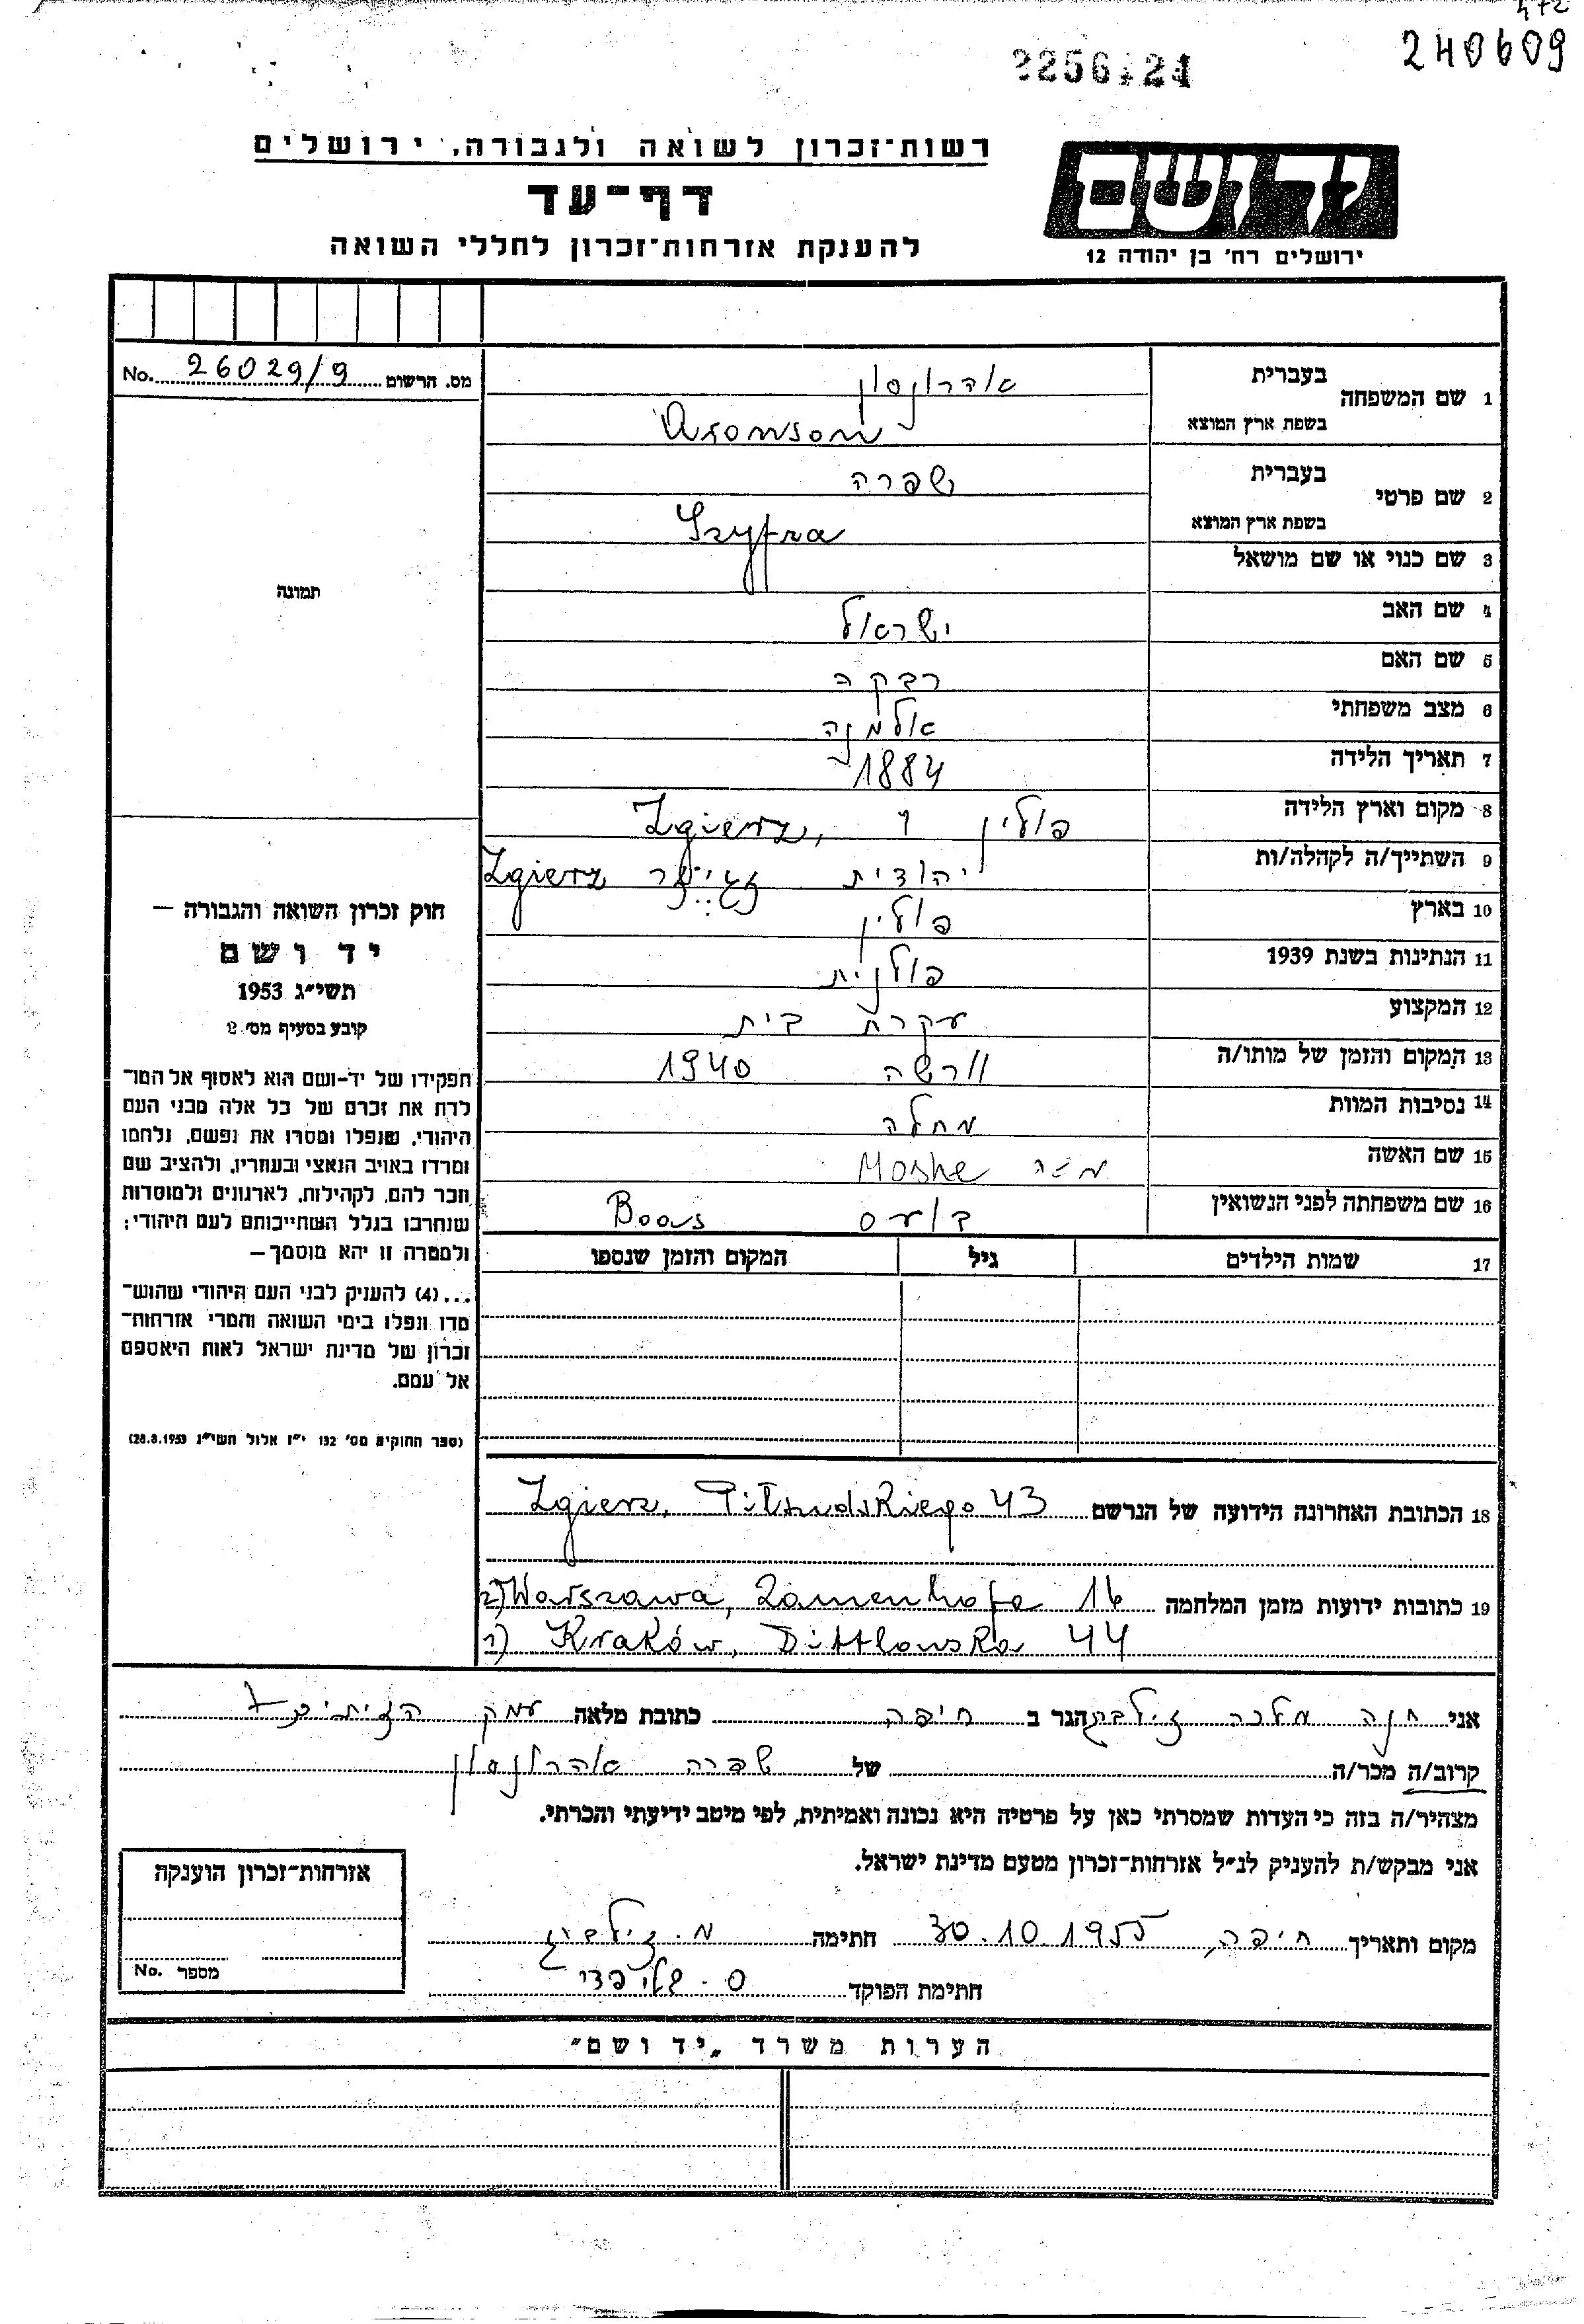 240609
רשות־זכרון לשואה ולגבורה, ירושלים
דף־עד
להענקת אזרחות־זכרון לחללי השואה
יד ושם
ירושלים רח׳ בן יהודה 12
מס. הרשום 26029/9 No.
1 שם המשפחה בעברית אהרונסון
בשפת ארץ המוצא Aronson
2 שם פרטי בעברית שפרה
בשפת ארץ המוצא Szyfra
3 שם כנוי או שם מושאל
תמונה
4 שם האב ישראל
5 שם האם רבקה
6 מצב משפחתי אלמנה
7 תאריך הלידה 1884
8 מקום וארץ הלידה פולין Zgierz,
9 השתייך/ה לקהלה/ות יהודית Zgierz
10 בארץ פולין
11 הנתינות בשנת 1939 פולנית
12 המקצוע עקרת בית
13 המקום והזמן של מותו/ה וורשה 1940
14 נסיבות המוות מחלה
15 שם האשה Moshe
16 שם משפחתה לפני הנשואין בועס Boas
17 שמות הילדים גיל המקום והזמן שנספו
חוק זכרון השואה והגבורה —
יד ושם
תשי״ג 1953
קובע בסעיף מס׳ 2
תפקידו של יד-ושם הוא לאסוף אל המו־
לדת את זכרם של כל אלה מבני העם
היהודי, שנפלו ומסרו את נפשם, נלחמו
ומרדו באויב הנאצי ובעוזריו, ולהציב שם
וזכר להם, לקהילות, לארגונים ולמוסדות
שנחרבו בגלל השתייכותם לעם היהודי;
ולמטרה זו יהא מוסמך—
...(4) להעניק לבני העם היהודי שהוש־
מדו ונפלו בימי השואה והמרי אזרחות־
זכרון של מדינת ישראל לאות היאספם
אל עמם.
(ספר החוקים מס׳ 132 י״ז אלול תשי״ג 28.8.1953)
18 הכתובת האחרונה הידועה של הנרשם Zgierz, Piłsudskiego 43
19 כתובות ידועות מזמן המלחמה 2) Warszawa, Zamenhofa 16
1) Kraków, Dittlowska 44
אני חנה מלכה זילברג הגר ב חיפה כתובת מלאה עמק הזיתים 7
קרוב/ה מכר/ה של שפרה אהרונסון
מצהיר/ה בזה כי העדות שמסרתי כאן על פרטיה היא נכונה ואמיתית, לפי מיטב ידיעתי והכרתי.
אני מבקש/ת להעניק לנ״ל אזרחות־זכרון מטעם מדינת ישראל.
מקום ותאריך חיפה, 30.10.1955 חתימה מ. זילברג
חתימת הפוקד
אזרחות־זכרון הוענקה
מספר No.
הערות משרד „יד ושם״